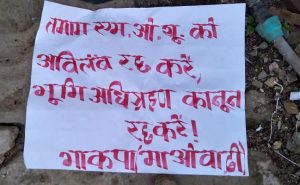 तमाम एम.ओ.यू को
अविलंब रद्द करें,
भूमि अधिग्रहण कानून
रद्द करें!
भाकपा माओवादी